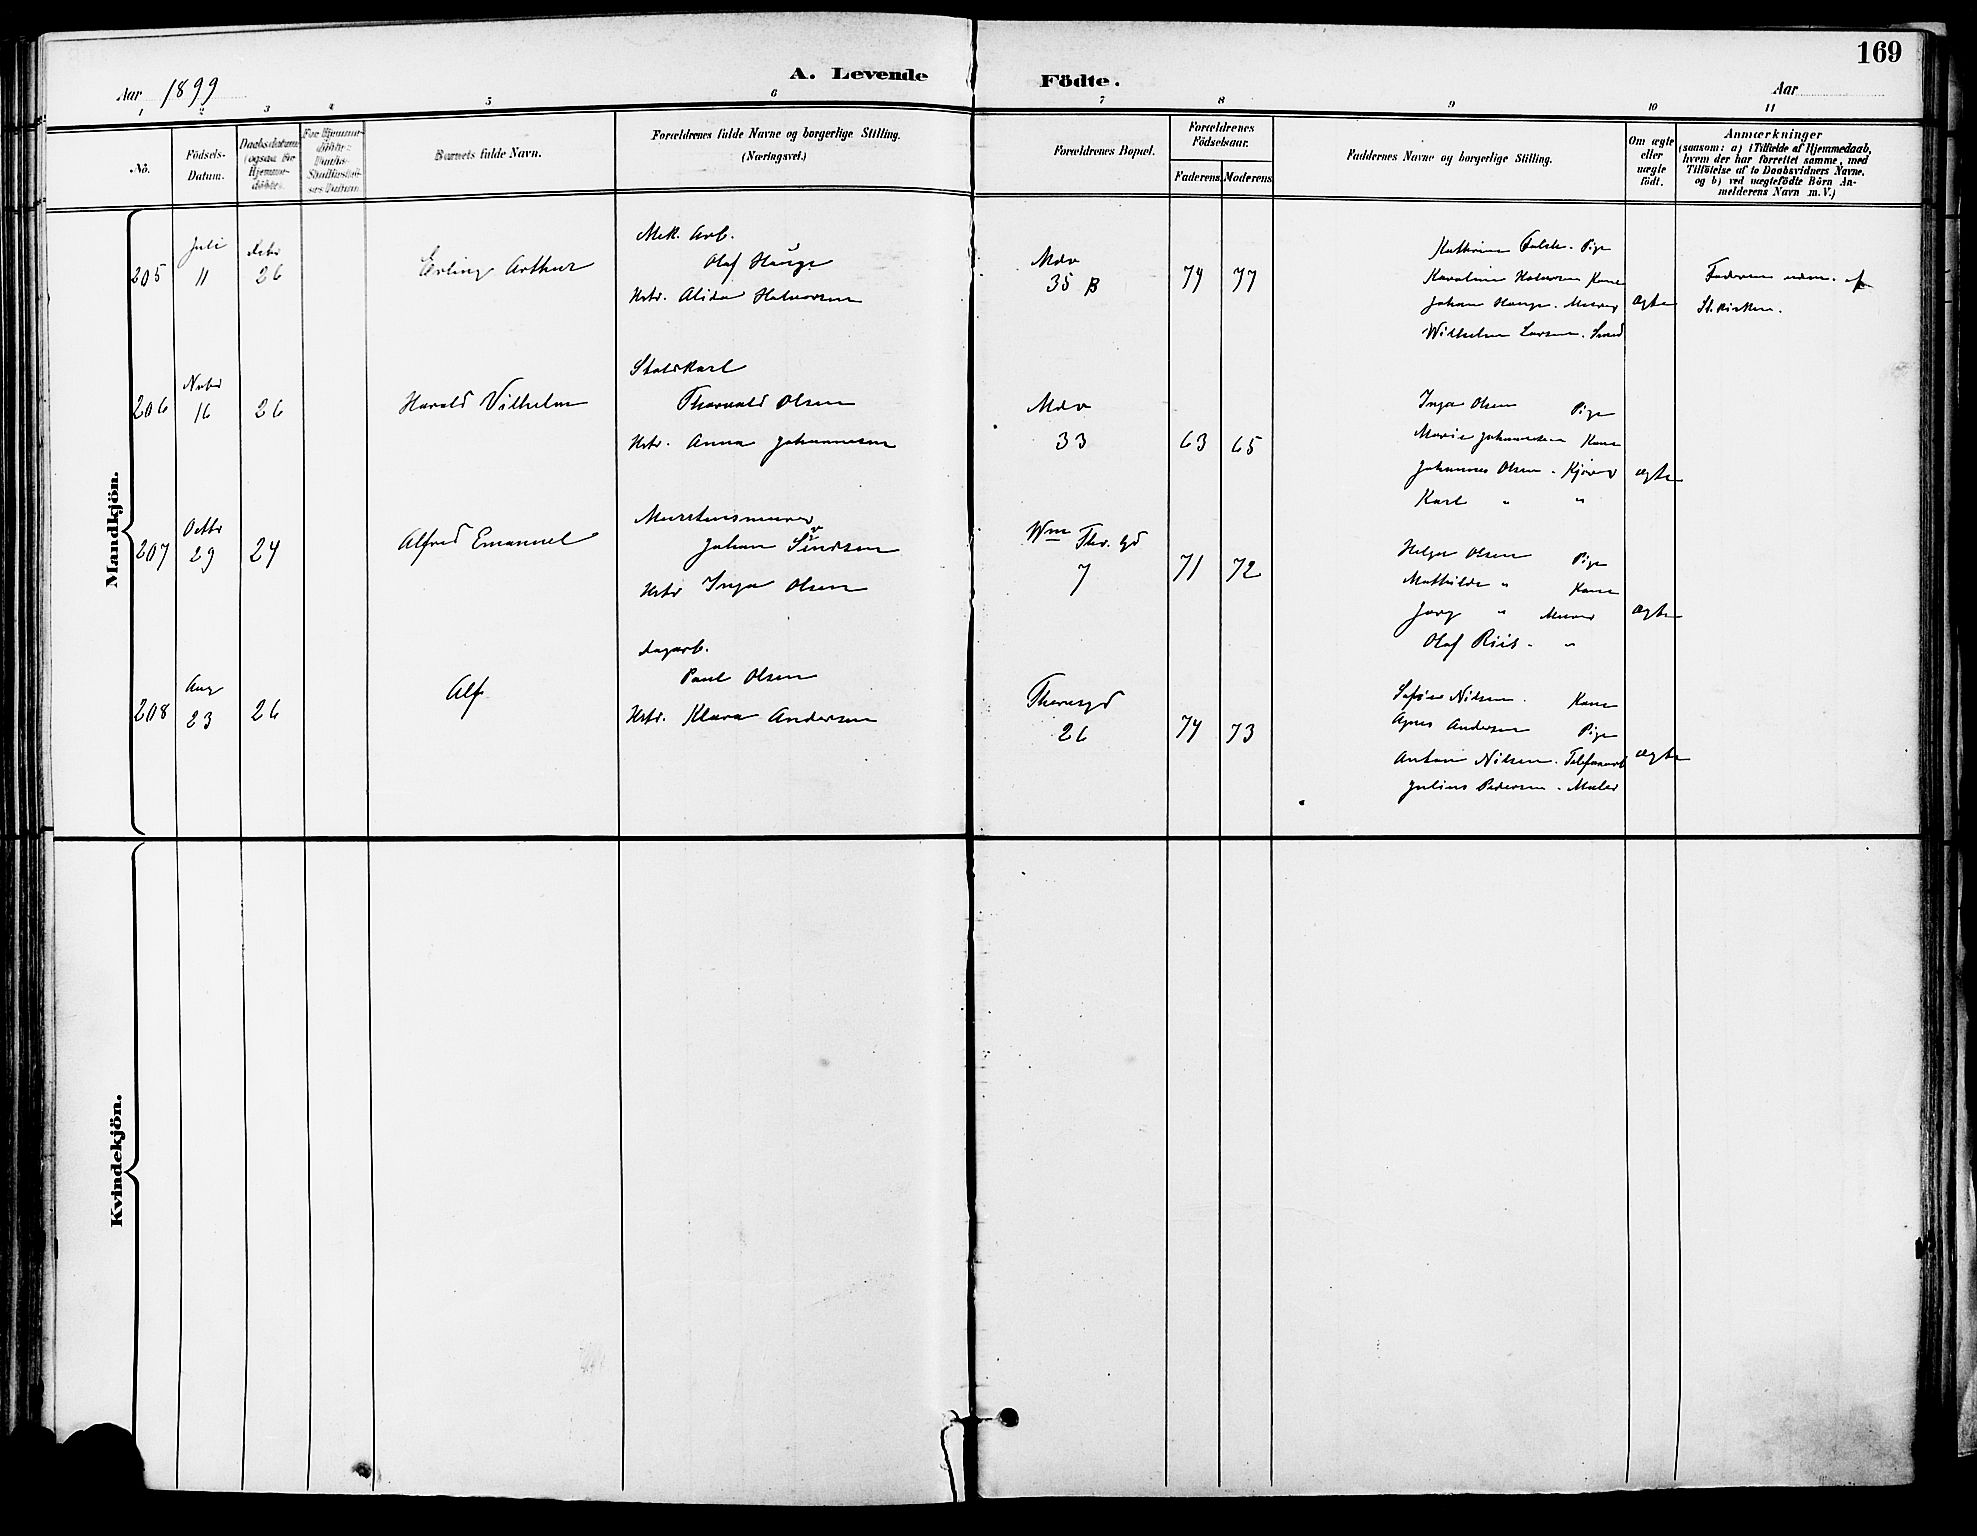 169
A. Levende Födte.
Aar 1899
Aar
1 2 3 4 5 6 7 8 9 10 11
Nô.
Födsels-Datum.
Daabsdatum (ogsaa for Hjemme-döbte).
Barnets fulde Navn.
Forældrenes fulde Navne og borgerlige Stilling. (Næringsvei.)
Forældrenes Bopæl.
Forældrenes Födselsaar.
Faderens Moderens
Faddernes Navne og borgerlige Stilling.
Om ægte eller uægte födt.
Anmærkninger
(saasom: a) i Tilfælde af Hjemmedaab,
hvem der har forrettet samme, med
Tilföielse af to Daabsvidners Navne,
og b) ved uægtefödte Börn An-
melderens Navn m. V.)
Mandkjön.
205
Juli
11
Debr
26
Erling Arthur
Mek. Arb.
Olaf Hauge
Hstr. Alida Halvorsen
Mdv
35 B
74 77
Kathrine Falck. Pige
Karoline Halvorsen Kone
Johan Hauge. Murer
Wilhelm Larsen. Smed
ægte
Faderen udm. af
St.kirken.
206
Novbr
16
26
Harald Vilhelm
Staldkarl
Thorvald Olsen
Hstr. Anna Johannesen
Mdv
33
63 65
Inga Olsen Pige
Marie Johannesen Kone
Johannes Olsen. Kjører
Karl " "
ægte
207
Octbr
29
24
Alfred Emanuel
Murstensmurer
Johan
Hstr Inga Olsen
Wm Thr. gd
7
71 72
Helga Olsen Pige
Mathilde " Kone
" Murer
Olaf Riis. "
ægte
208
Aug
23
26
Alf
Dagarb.
Paul Olsen
Hstr. Klara Andersen
Theresgd
26
74 73
Nilsen. Kone
Agnes Andersen Pige
Anton Nilsen. Telefonarb
Julius Pedersen. Maler
ægte
Kvindekjön.